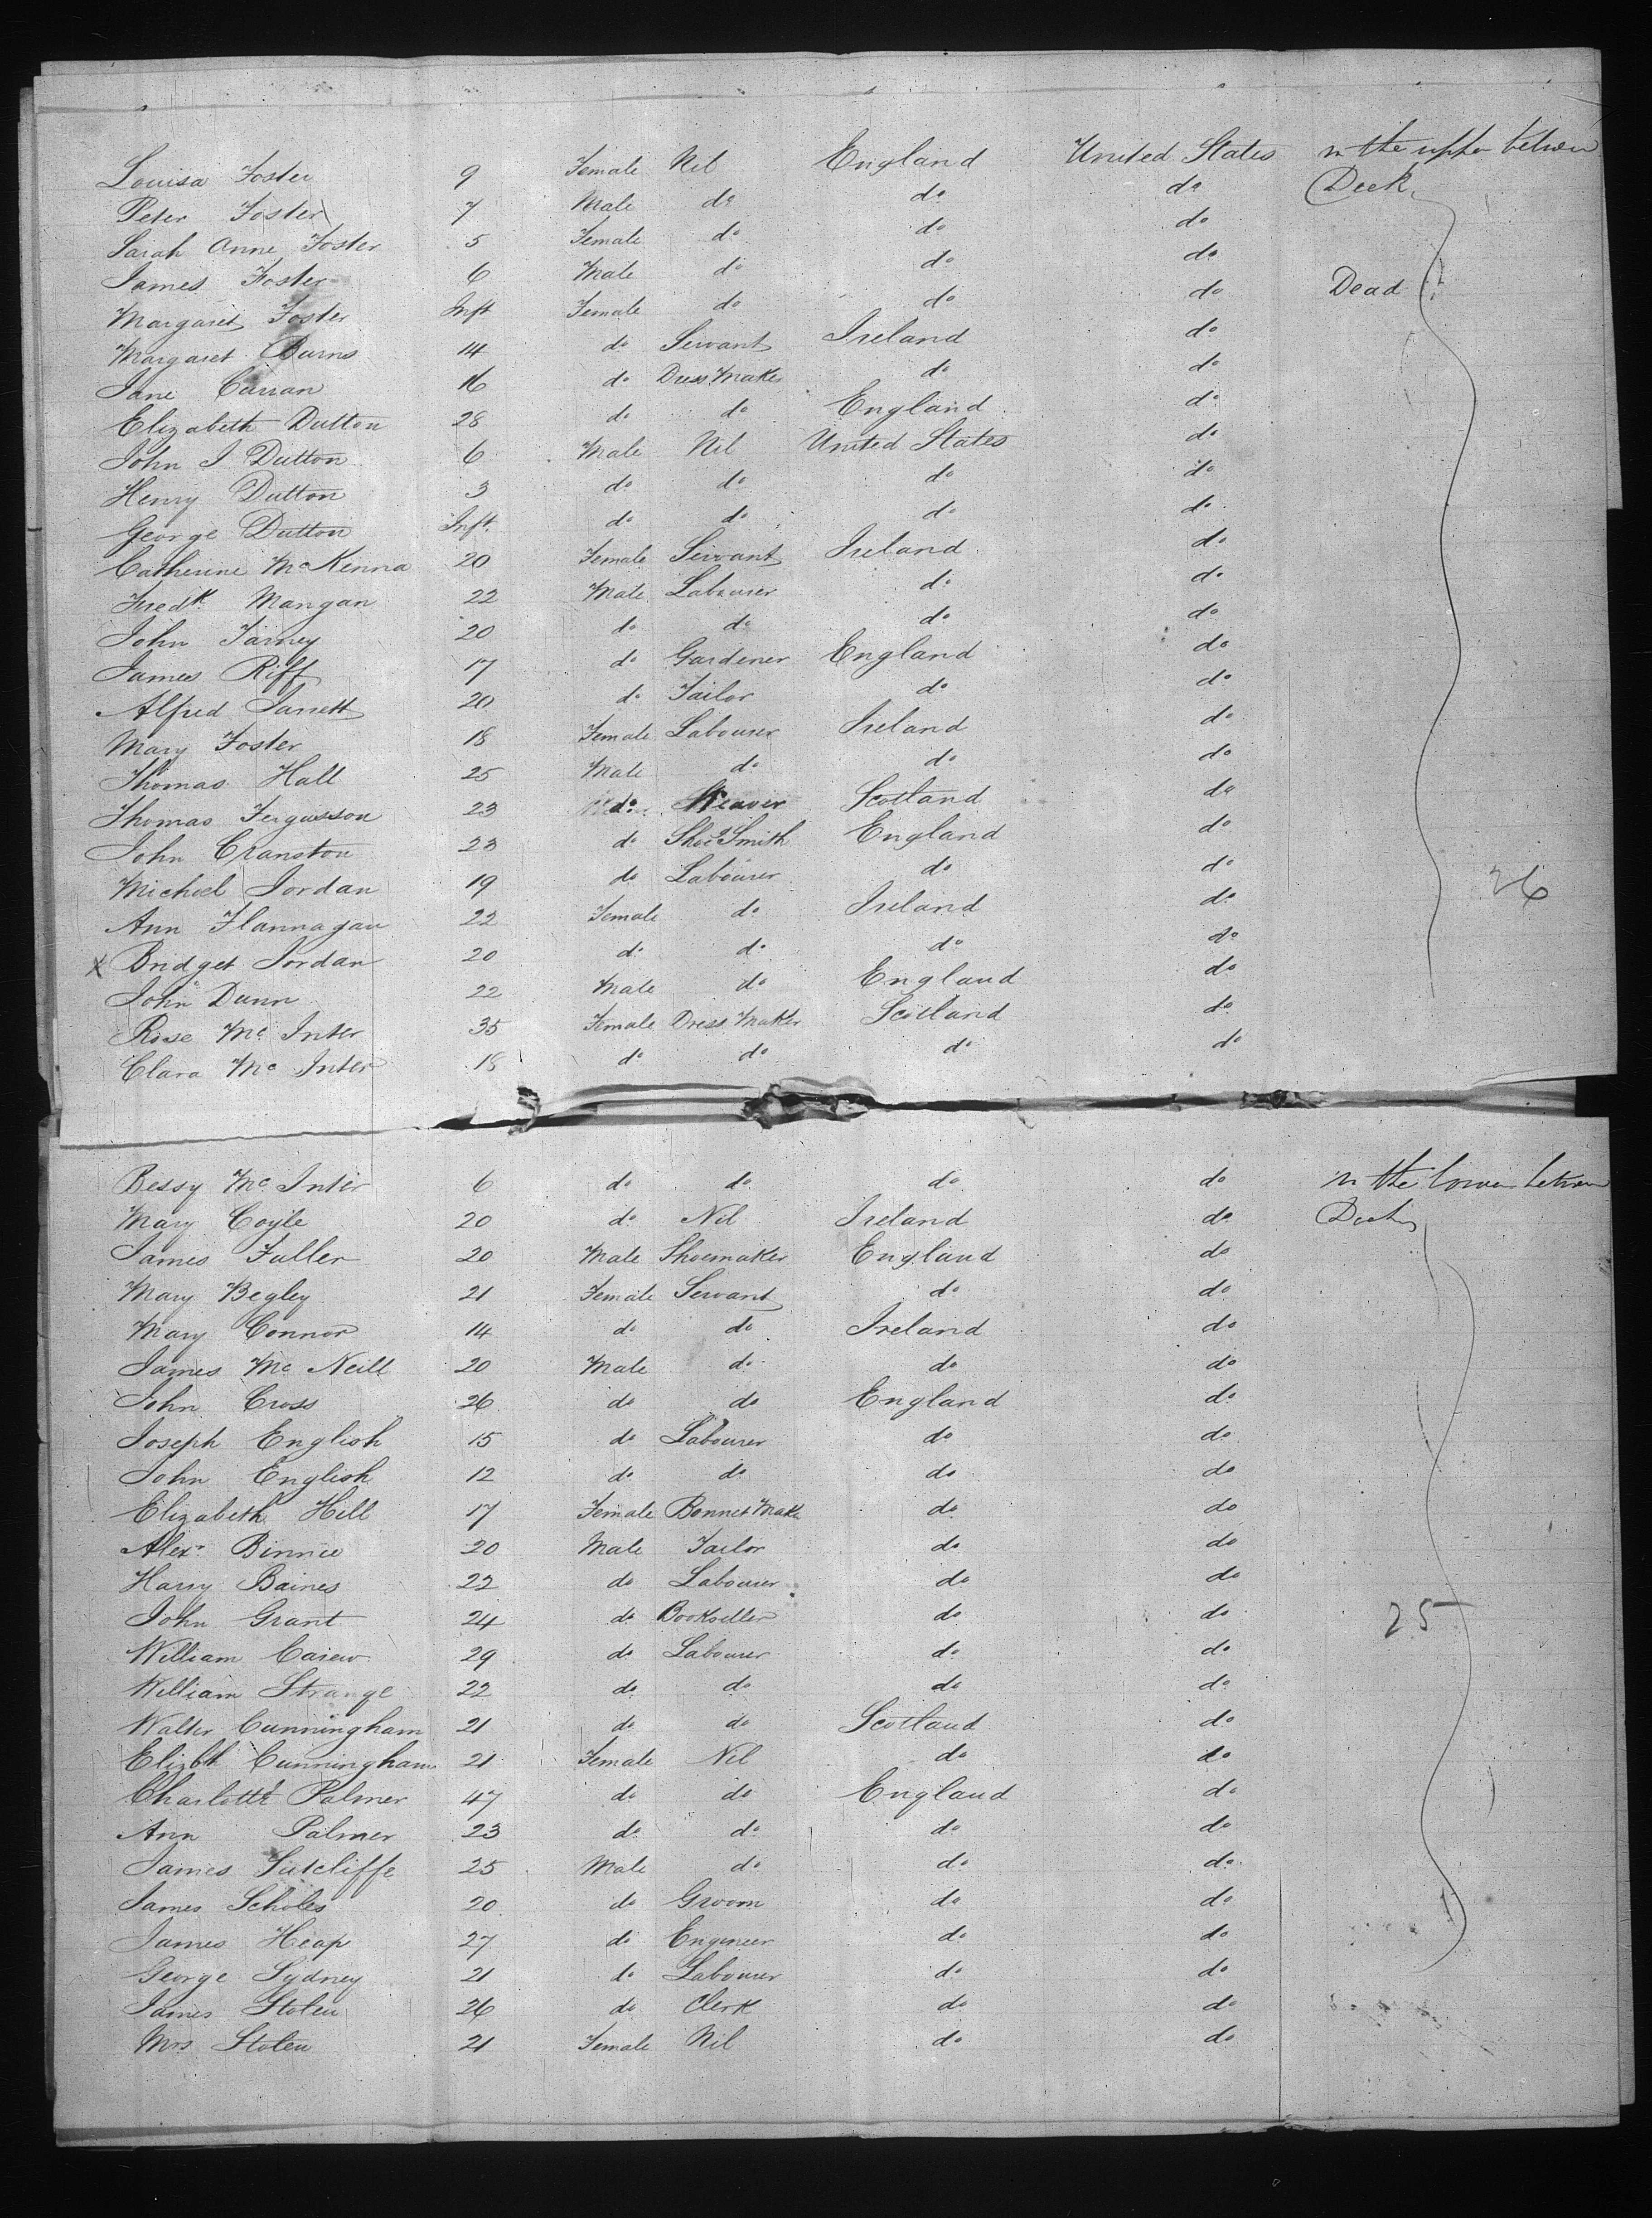 Louisa Foster 9 Female Nil England United States in the upper between
Peter Foster 7 Male do do do Deck
Sarah Anne Foster 5 Female do do do
James Foster 6 Male do do do
Margaret Foster Inft Female do do do Dead
Margaret Burns 14 do Servant Ireland do
Jane Curran 16 do Dress Maker do do
Elizabeth Dutton 28 do do England do
John J Dutton 6 Male Nil United States do
Henry Dutton 3 do do do do
George Dutton Inft. do do do do
Catherine McKenna 20 Female Servant Ireland do
Fredk Mangan 22 Male Labourer do do
John Tarney 20 do do do do
James Riff 17 do Gardener England do
Alfred Jarrett 20 do Tailor do do
Mary Foster 18 Female Labourer Ireland do
Thomas Hall 25 Male do do do
Thomas Fergusson 23 do Weaver Scotland do
John Cranston 23 do Shoe Smith England do
Michael Jordan 19 do Labourer do do 26
Ann Flannagan 22 Female do Ireland do
X Bridget Jordan 20 do do do do
John Dunn 22 Male do England do
Rose Mc Inter 35 Female Dress Maker Scotland do
Clara Mc Inter 18 do do do do
Bessy Mc Inter 6 do do do do in the lower between
Mary Coyle 20 do Nil Ireland do Decks
James Fuller 20 Male Shoemaker England do
Mary Begley 21 Female Servant do do
Mary Connor 14 do do Ireland do
James Mc Neill 20 Male do do do
John Cross 26 do do England do
Joseph English 15 do Labourer do do
John English 12 do do do do
Elizabeth Hill 17 Female Bonnet Make do do
Alexr Binnie 20 Male Tailor do do
Harry Baines 22 do Labourer do do
John Grant 24 do Bookseller do do 25
William Carew 29 do Labourer do do
William Strange 22 do do do do
Walter Cunningham 21 do do Scotland do
Elizbth Cunningham 21 Female Nil do do
Charlotte Palmer 47 do do England do
Ann Palmer 23 do do do do
James Sutcliffe 25 Male do do do
James Scholes 20 do Groom do do
James Heap 27 do Engineer do do
George Sydney 21 do Labourer do do
James Stolen 26 do Clerk do do
Mrs Stolen 21 Female Nil do do